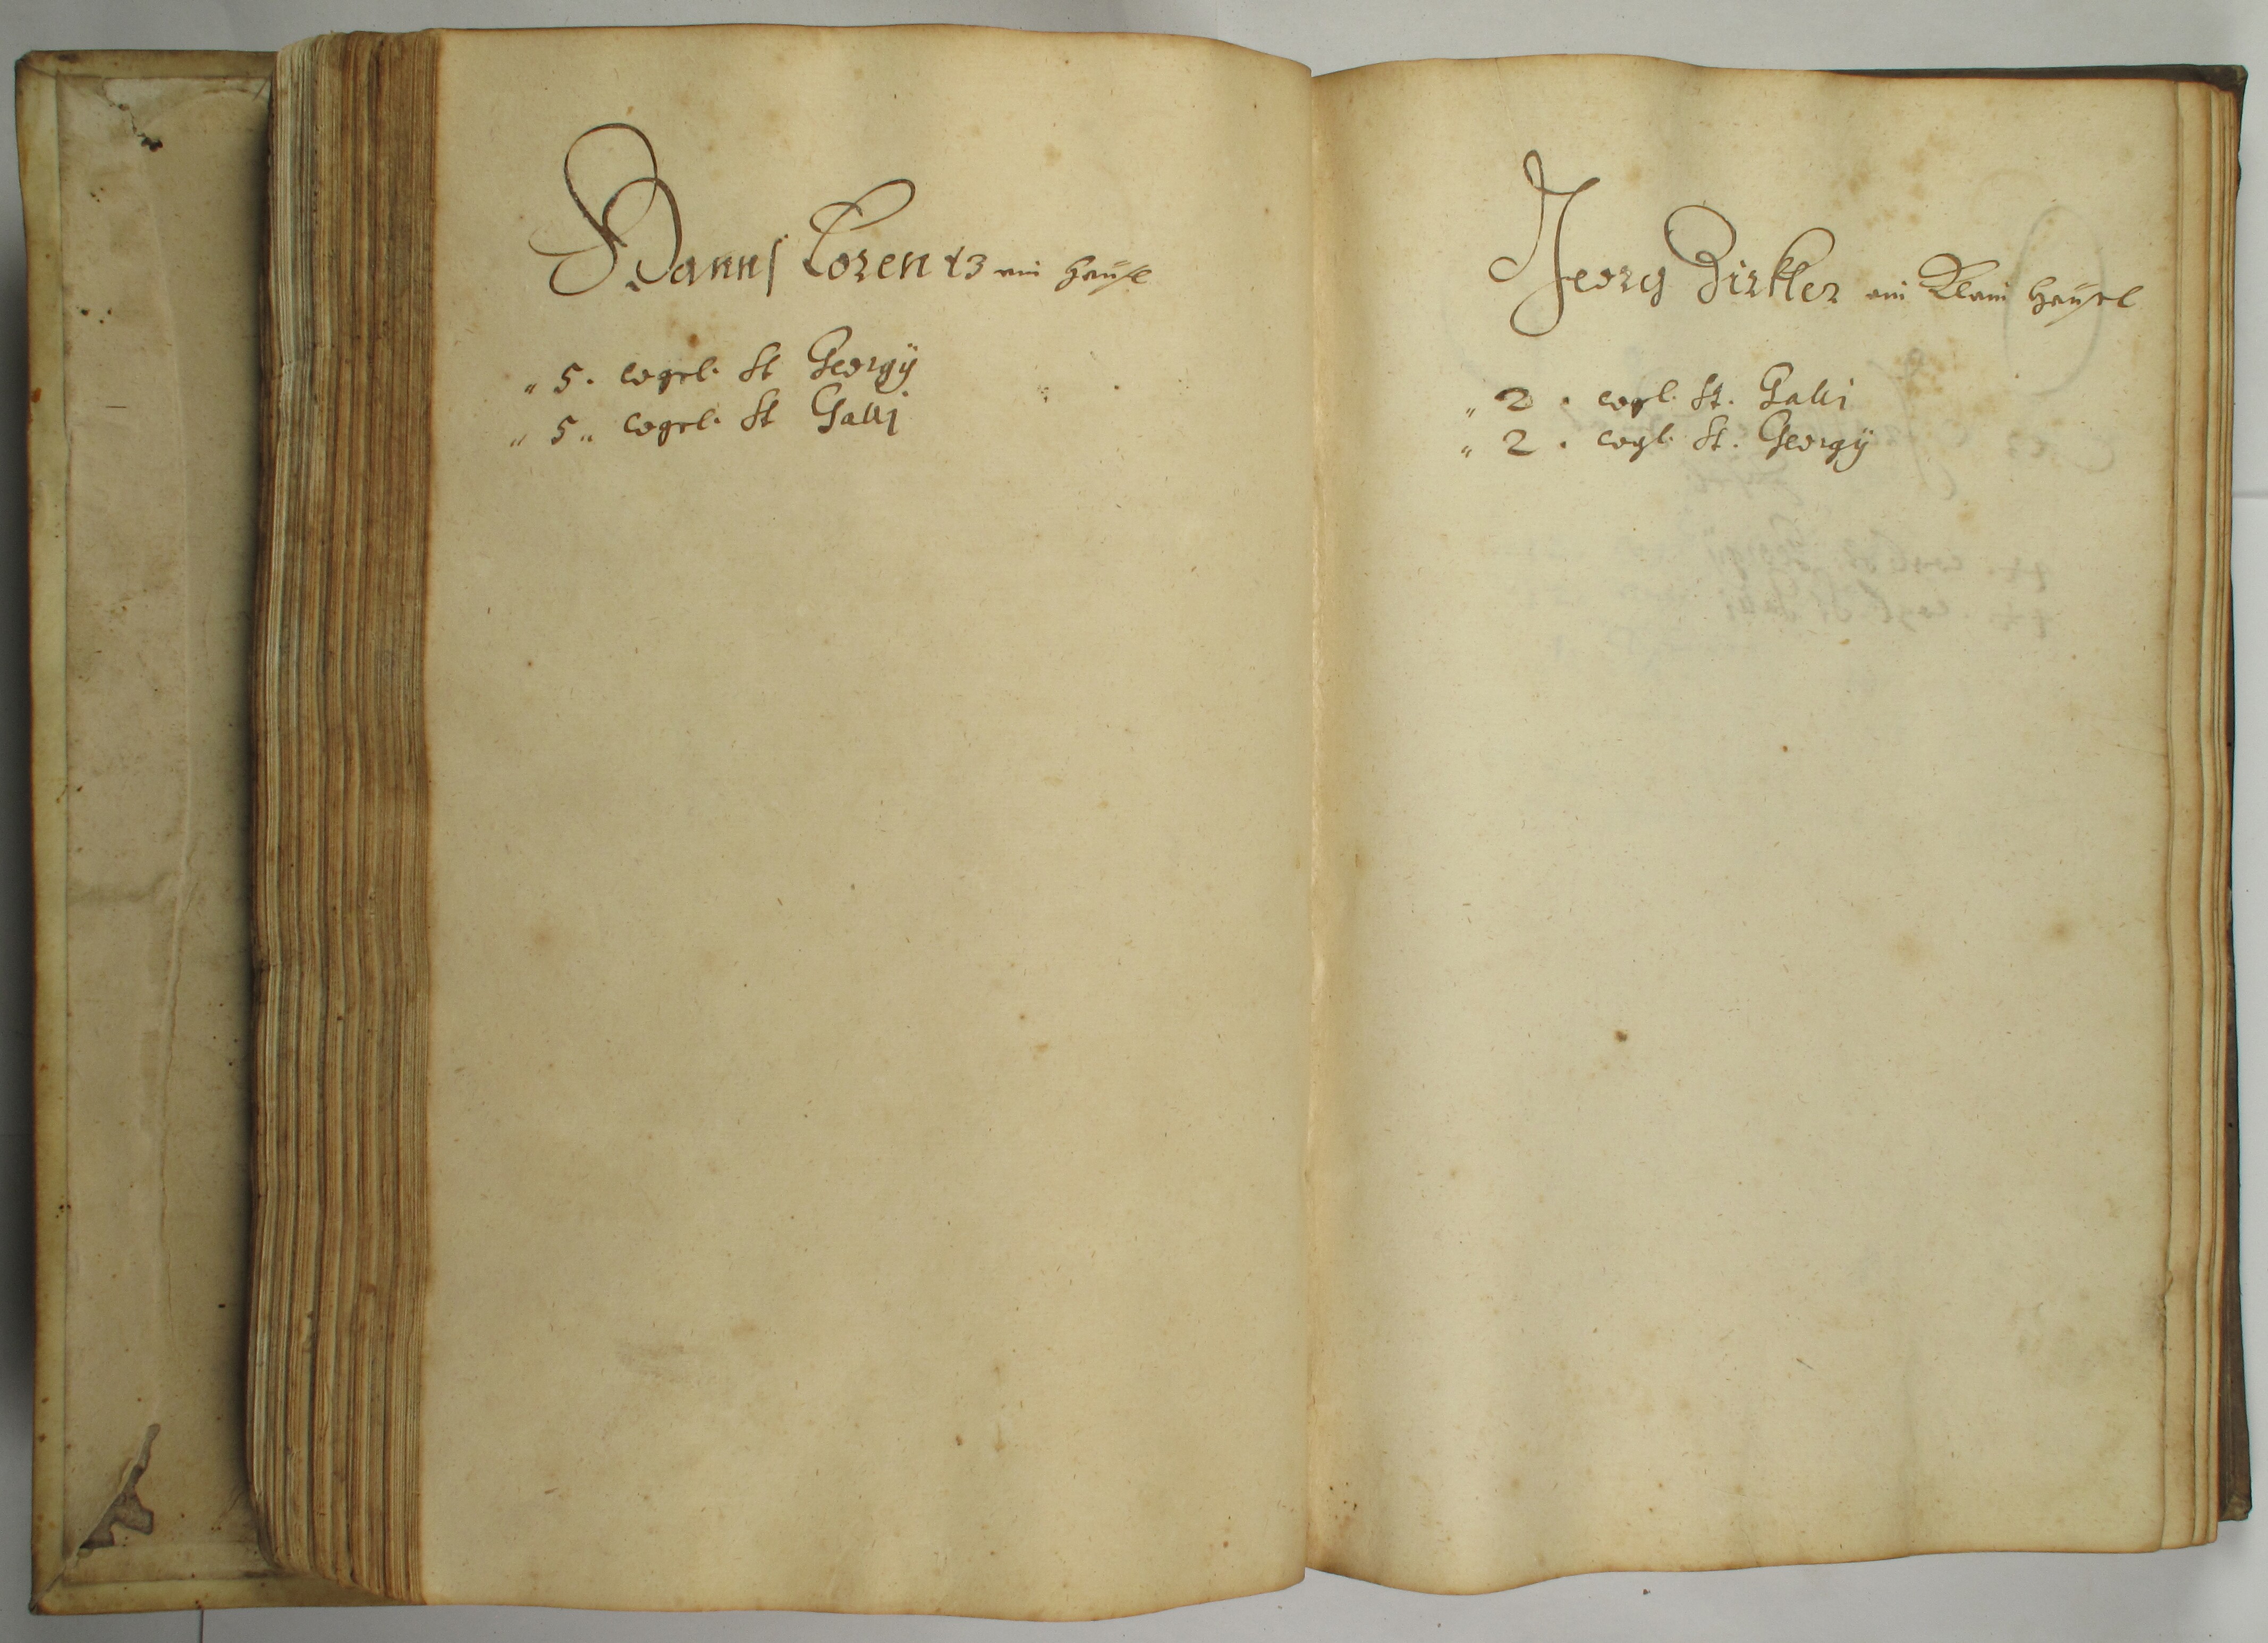 Hanns Lorentz ein Heüsl
" 5 . wgrl. St Georgÿ
" 5 " wgrl. St Galli
Georg Zirkler ein Klein Heüsel
" 2 . wgl. St. Galli
" 2 . wgl. St. Georgÿ